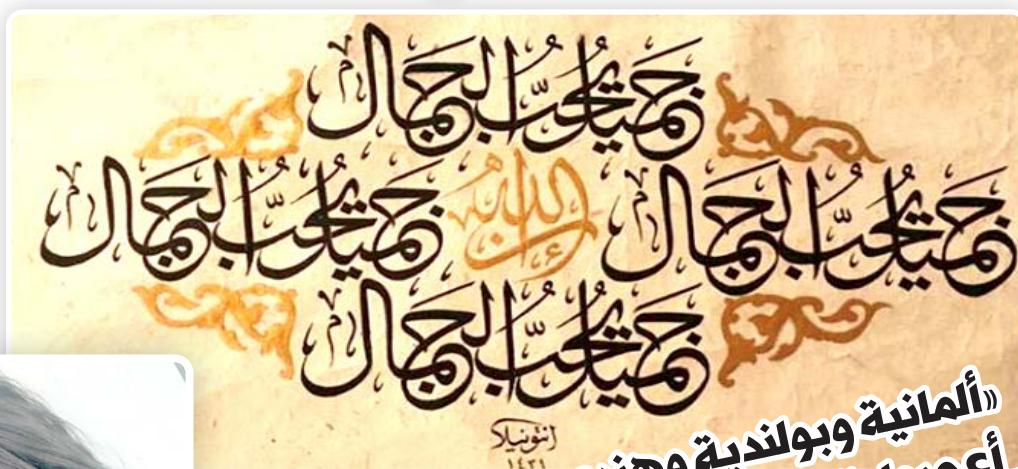 جميل يحب الجمال
جميل يحب الجمال
إن الله
جميل يحب الجمال
جميل يحب الجمال
أنتونيلا
١٤٣١
«ألمانية وبولندية